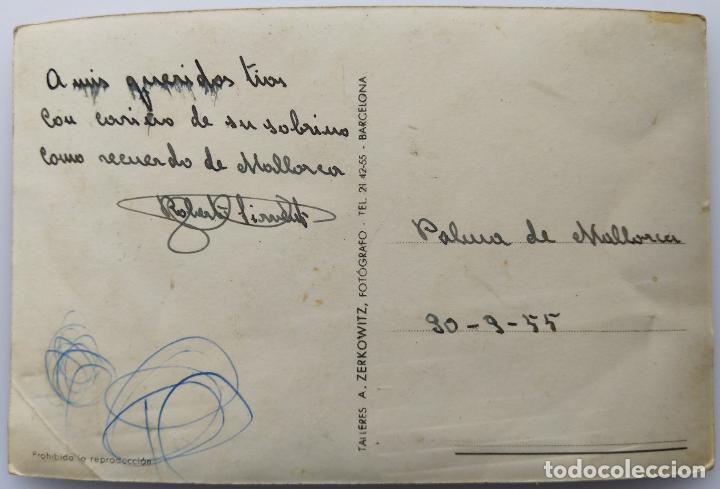 A mis queridos tios
con cariño de su sobrino
como recuerdo de Mallorca
Roberto
TALLERES A. ZERKOWITZ, FOTÓGRAFO - TEL. 21 42-55 - BARCELONA
Palma de Mallorca
30-9-55
Prohibida la reproducción
todocoleccion
todocoleccion.net